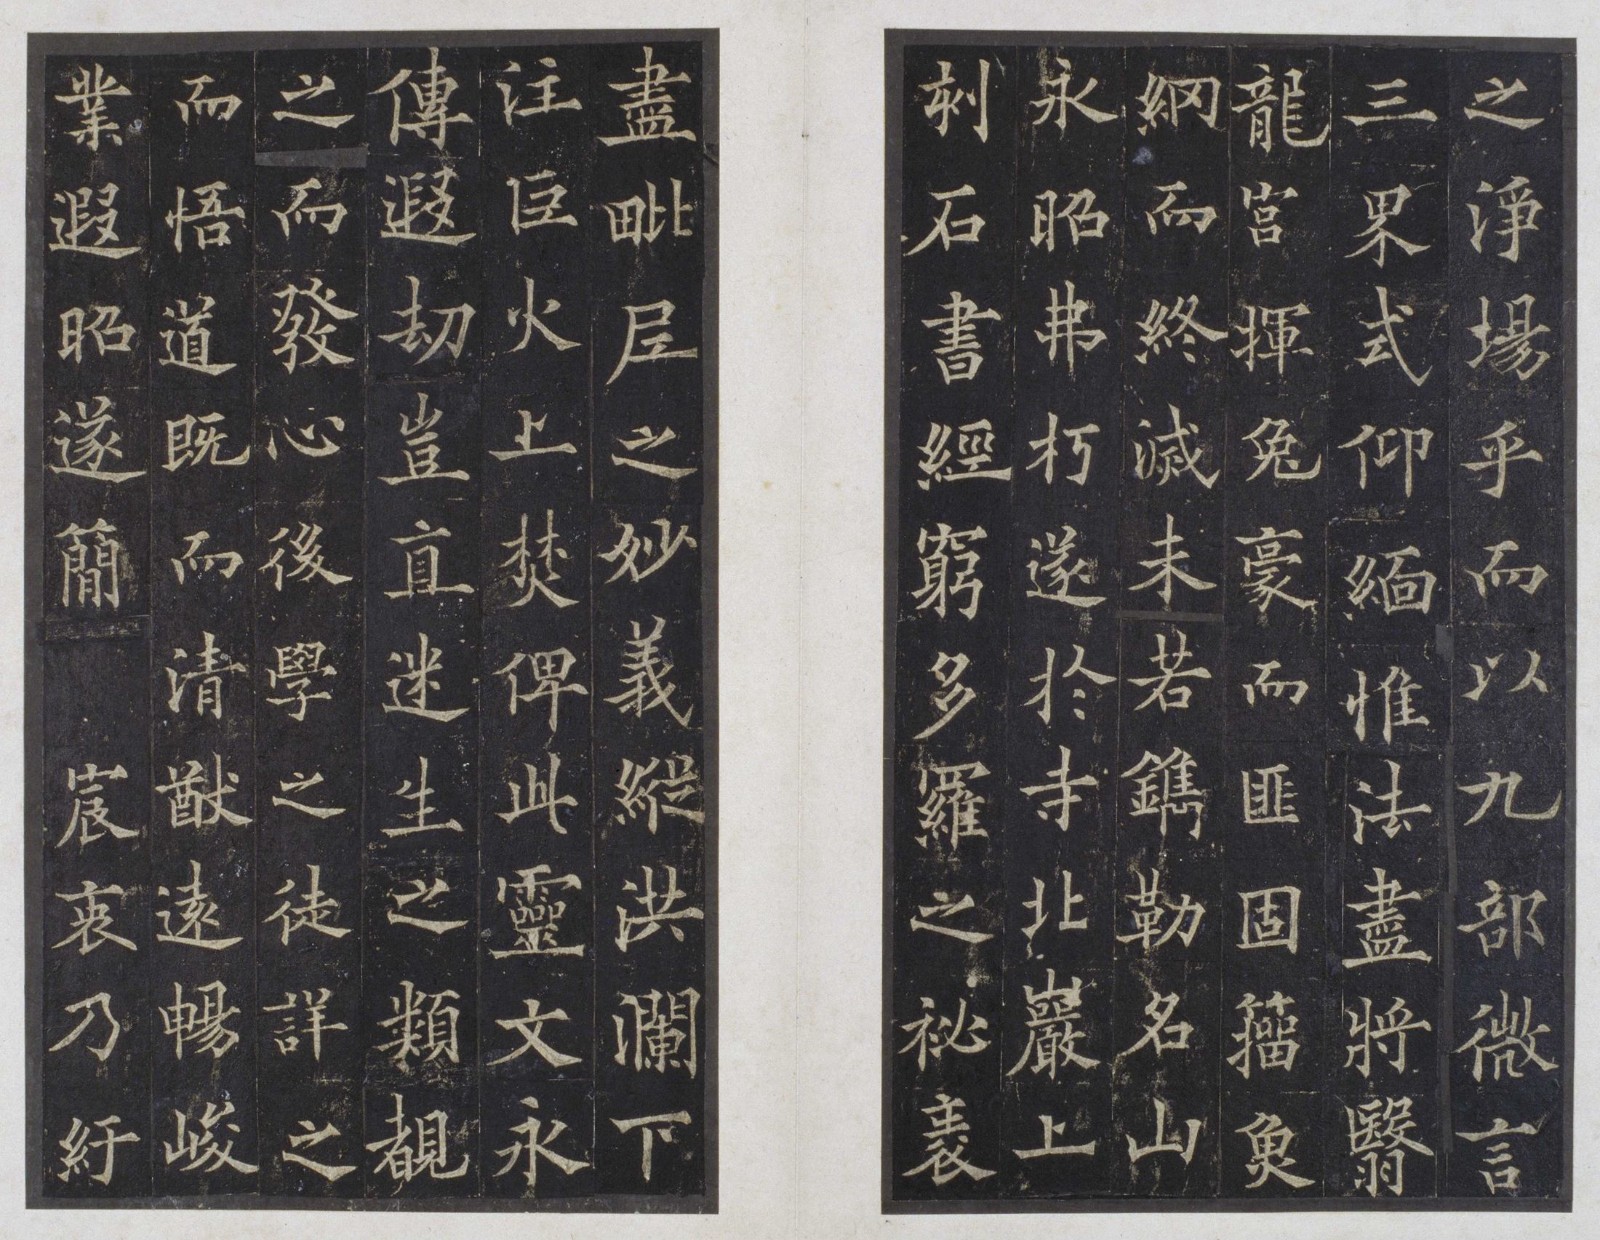 之淨場乎而以九部微言
三界式仰緬惟法盡將翳
龍宮揮兔豪而匪固籀魚
網而終滅未若鐫勒名山
永昭弗朽遂於寺北巖上
刾石書經窮多羅之祕袠
盡毗尼之妙義縱洪瀾下
注巨火上焚俾此靈文永
傳遐劫豈直迷生之類覩
之而發心後學之徒詳之
而悟道既而清猷遠暢峻
業遐昭遂簡宸衷乃紆